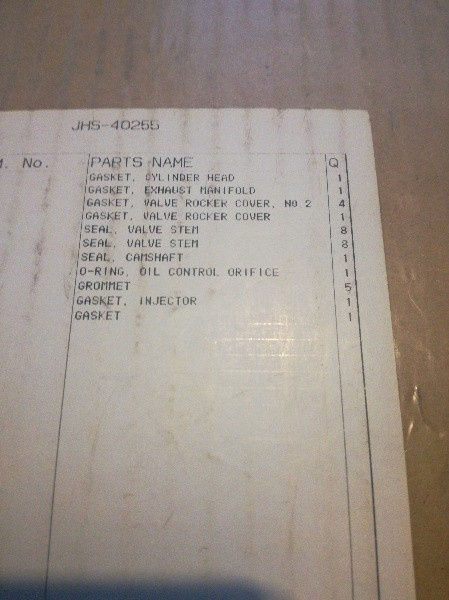 JHS-40255
. No. PARTS NAME Q
GASKET, CYLINDER HEAD 1
GASKET, EXHAUST MANIFOLD 1
GASKET, VALVE ROCKER COVER, NO 2 4
GASKET, VALVE ROCKER COVER 1
SEAL, VALVE STEM 8
SEAL, VALVE STEM 8
SEAL, CAMSHAFT 1
O-RING, OIL CONTROL ORIFICE 1
GROMMET 5
GASKET, INJECTOR 1
GASKET 1